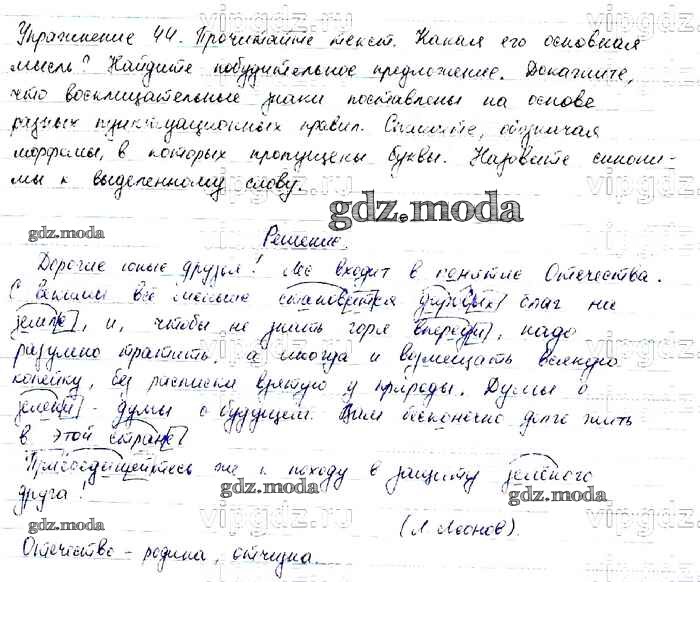 Упражнение 44. Прочитайте текст. Какая его основная
мысль? Найдите побудительное предложение. Докажите,
что восклицательные знаки поставлены на основе
разных пунктуационных правил. Спишите, обозначая
морфемы, в которых пропущены буквы. Назовите синони-
мы к выделенному слову.
gdz.moda
gdz.moda
Решение.
Дорогие юные друзья! Лес входит в понятие Отечества.
С годами всё меньше становится даровых благ на
земле, и, чтобы не знать горя впереди, надо
разумно тратить, а иногда и возмещать всякую
копейку, без расписки взятую у природы. Думы о
зелени - думы о будущем. Вам бесконечно долго жить
в этой стране!
Присоединяйтесь же к походу в защиту зелёного
друга!
gdz.moda
gdz.moda
gdz.moda
(Л. Леонов).
gdz.moda
Отечество - родина, отчизна.
vipgdz.ru
vipgdz.ru
vipgdz.ru